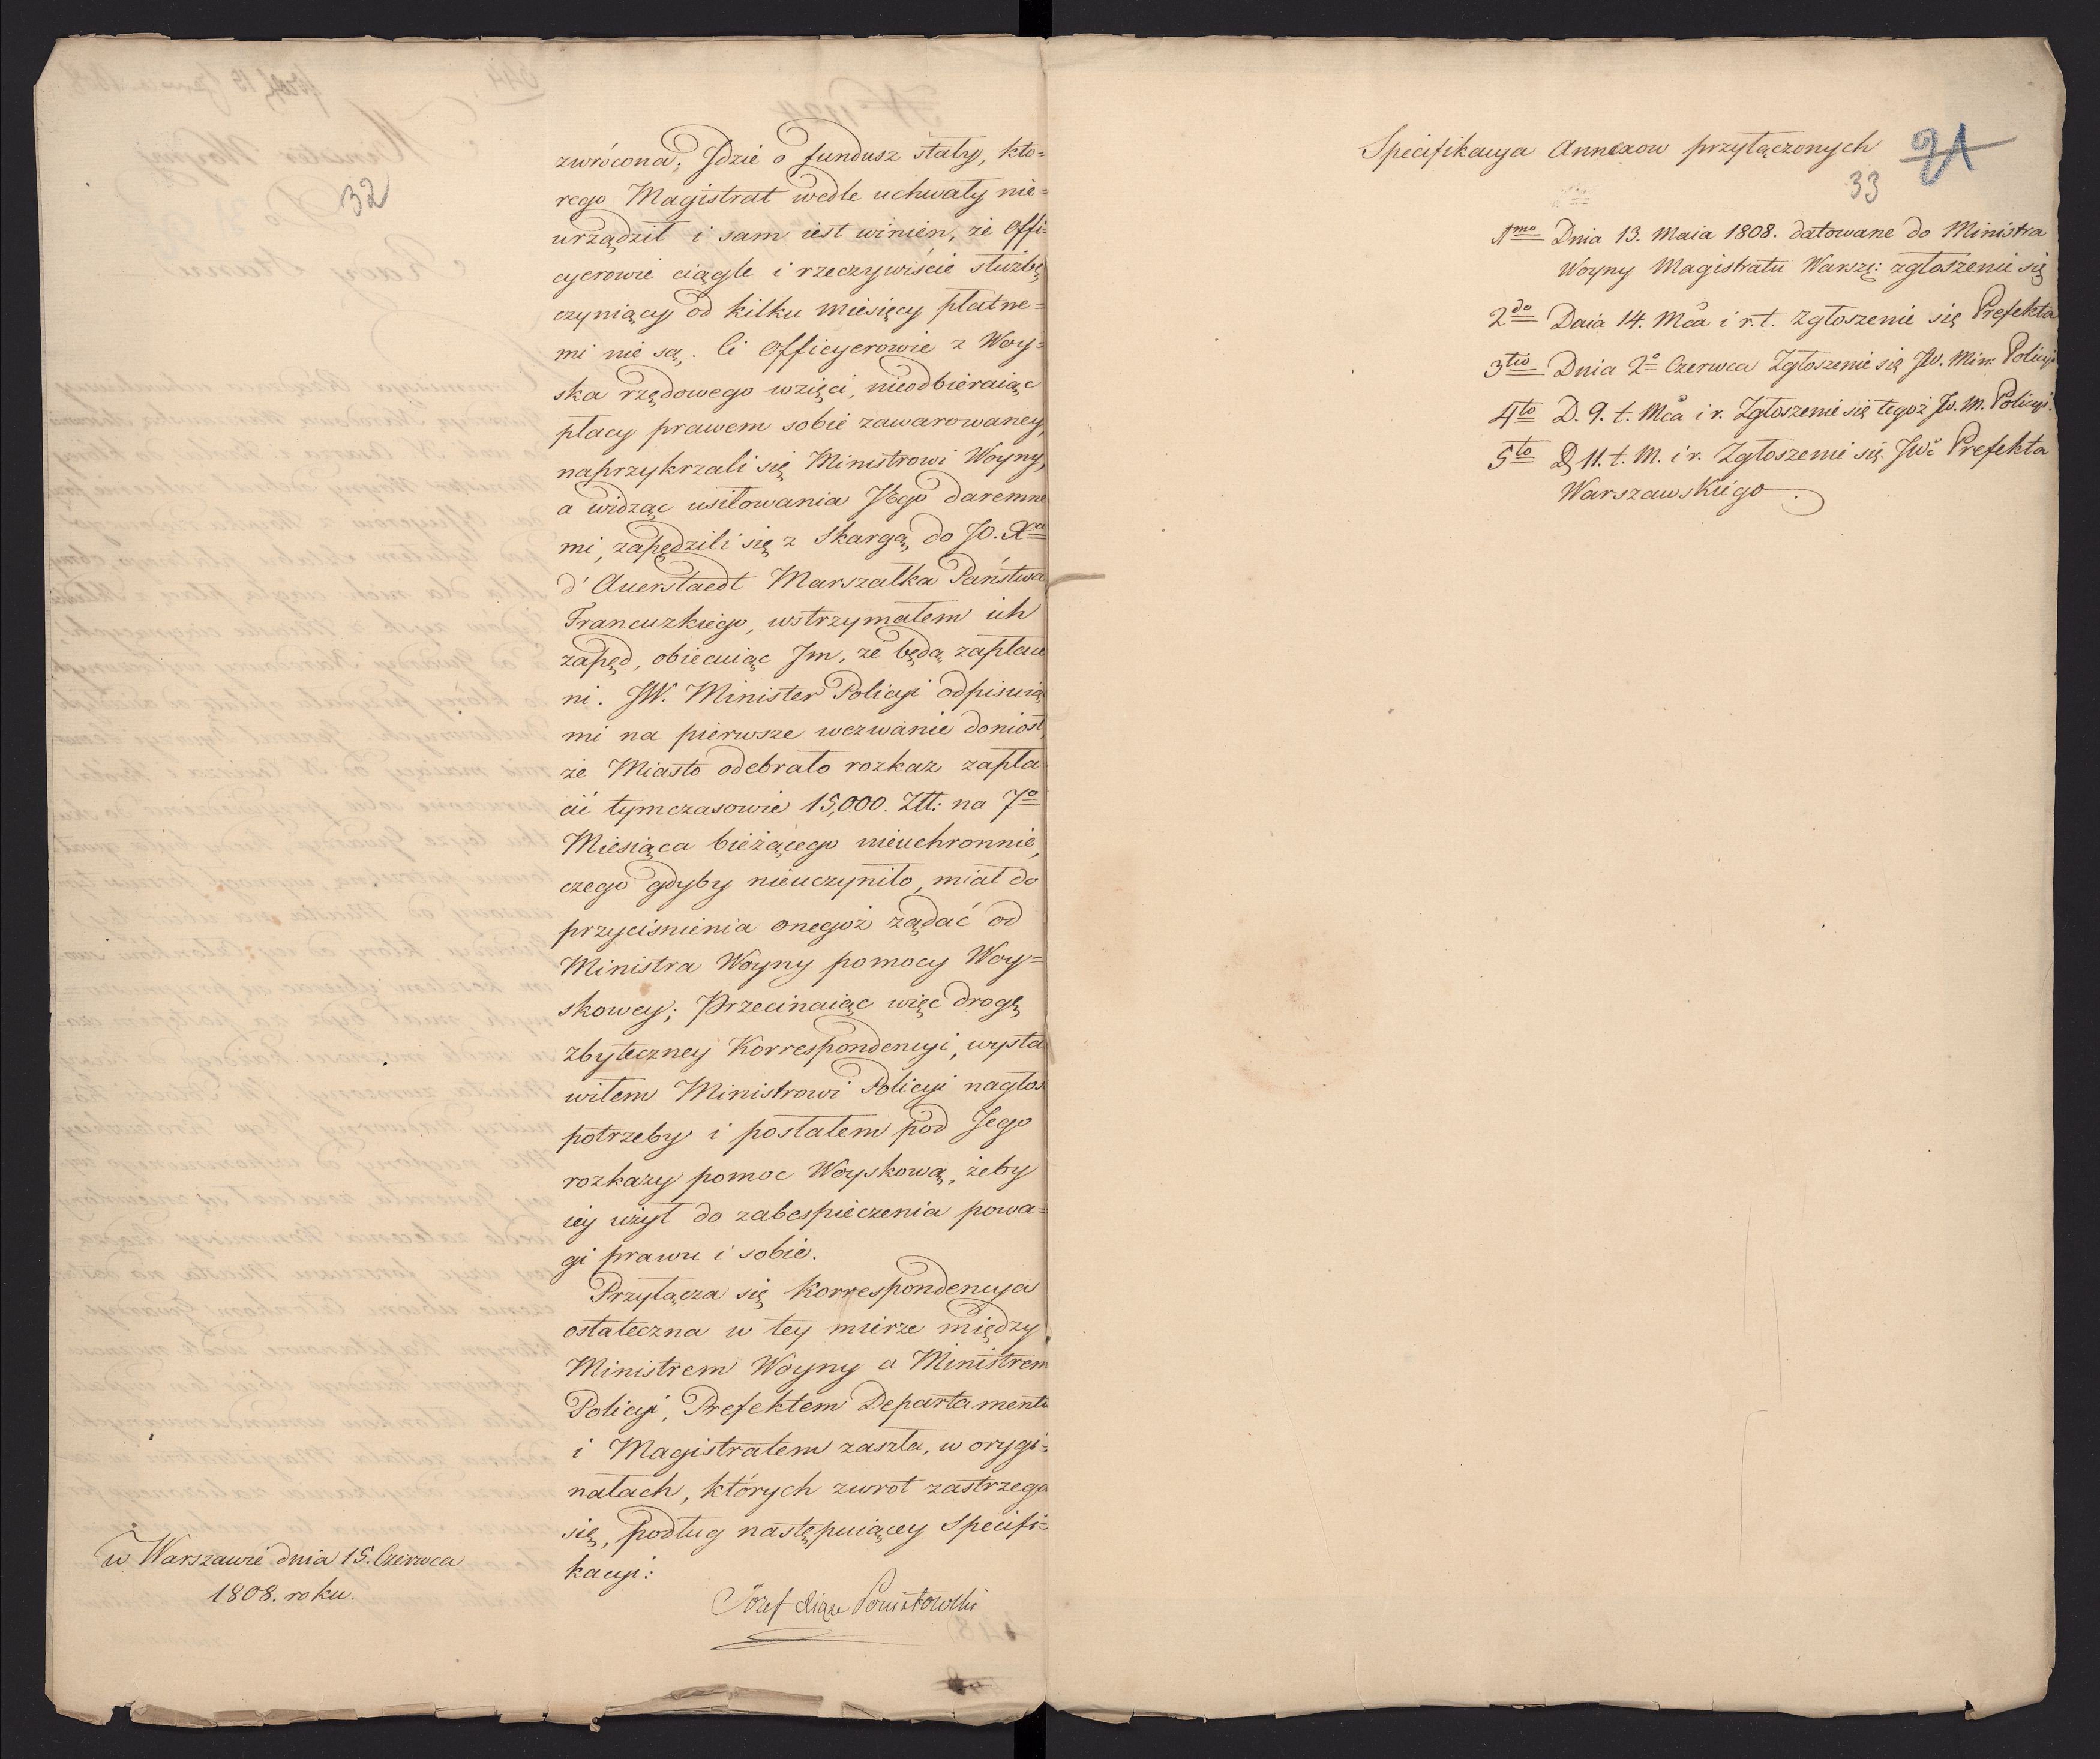 32
zwrócona; Jdzie o fundusz stały, któ=
rego Magistrat wedle uchwały nie=
urządził i sam iest winien, że Offi=
cyerowie ciągle i rzeczywiście służbę
czyniący od kilku miesięcy płatne=
mi nie są. Ci Officyerowie z Woy=
ska rzędowego wzięci, nieodbieraiąc
płacy prawem sobie zawarowaney,
naprzykrzali się Ministrowi Woyny,
a widząc usiłowania Jego daremne
mi, zapędzili się z Skargą do JO. Xcia
d'Auerstaedt Marszałka Państwa
Francuzkiego, wstrzymałem ich
zapęd, obiecuiąc Jm, że będą zapłace
ni. JW. Minister Policyi odpisuią
mi na pierwsze wezwanie doniosł,
że Miasto odebrało rozkaz zapła
cić tymczasowie 15,000. Złł: na 7o
Miesiąca bieżącego nieuchronnie,
czego gdyby nieuczyniło, miał do
przyciśnienia onegoż żądać od
Ministra Woyny pomocy Woy=
skowey; Przecinaiąc więc drogę
zbyteczney Korrespondencyi, wysta
wiłem Ministrowi Policyi nagłos
potrzeby i posłałem pod Jego
rozkazy pomoc Woyskową, żeby
iey użył do zabespieczenia powa=
gi prawu i sobie.
Przyłącza się Korrespondencya
ostateczna w tey mierze między
Ministrem Woyny a Ministrem
Policyi, Prefektem Departamentu
i Magistratem zaszła, w orygi=
nałach, których zwrot zastrzega
się, podług następuiącey Specifi=
kacyi:
w Warszawie dnia 15. Czerwca
1808. roku.
Józef Xiąże Poniatowski
Specifikacya Annexow przyłączonych
21
33
1mo Dnia 13. Maia 1808. datowane do Ministra
Woyny Magistratu Warszę: zgłoszenie się
2do Dnia 14. Mca i r. t. Zgłoszenie się Prefekta
3tio Dnia 2o Czerwca Zgłoszenie się JW. Min: Policyi
4to D. 9. t. Mca i r. Zgłoszenie się tegoż JW. M. Policyi.
5to D. 11. t. M. i r. Zgłoszenie się JWo Prefekta
Warszawskiego.